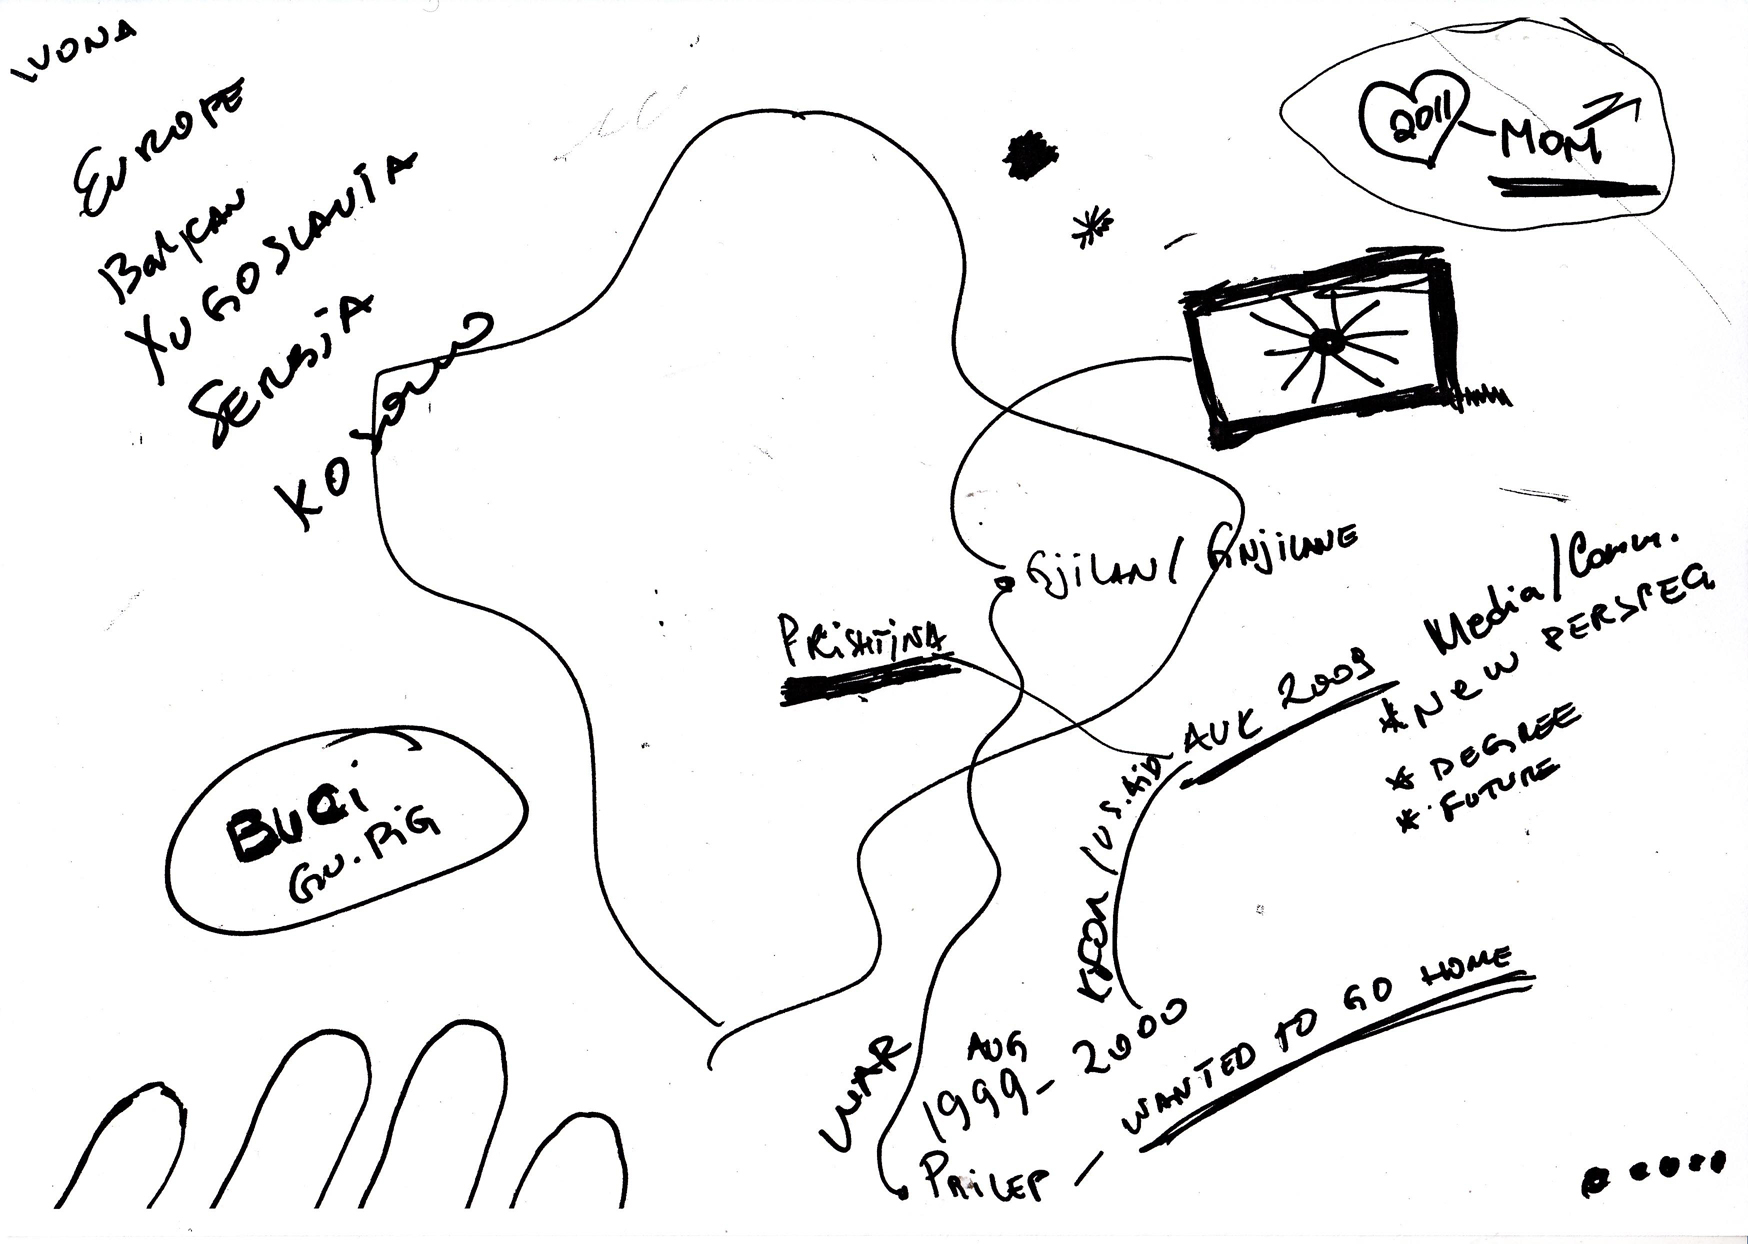 IVONA
EUROPE
BALKAN
YUGOSLAVIA
SERBIA
KOSOVO
2011 - MOM
GJILAN / GNJILANE
PRISHTINA
Media / Comm.
AUK 2009
* NEW PERSPEC.
* DEGREE
* FUTURE
KFOR / US.AID
BUCI
GU. PIG
WAR
AUG
1999 - 2000
PRILEP - WANTED TO GO HOME